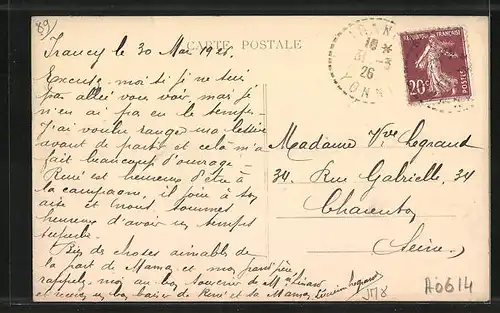 89
CARTE POSTALE
Irancy le 30 Mai 1926
Excusez-moi si je ne suis
pas allée vous voir mais je
n'en ai pas eu le temps
J'ai voulu ranger ma
avant de partir et cela m'a
fait beaucoup d'ouvrage.
René est heureux d'être à
la campagne il joue à son
aise et nous sommes
heureux d'avoir un temps
superbe.
Bien des choses aimables de
la part de Maman et mon grand père
rappelez moi au bon souvenir de Me
et recevez un bon baiser de René et sa Maman
31 -5
26
YONNE
REPUBLIQUE FRANÇAISE
20c
POSTES
Madame Vve Legrand
34. Rue Gabrielle. 34
Charenton
Seine.
A0614